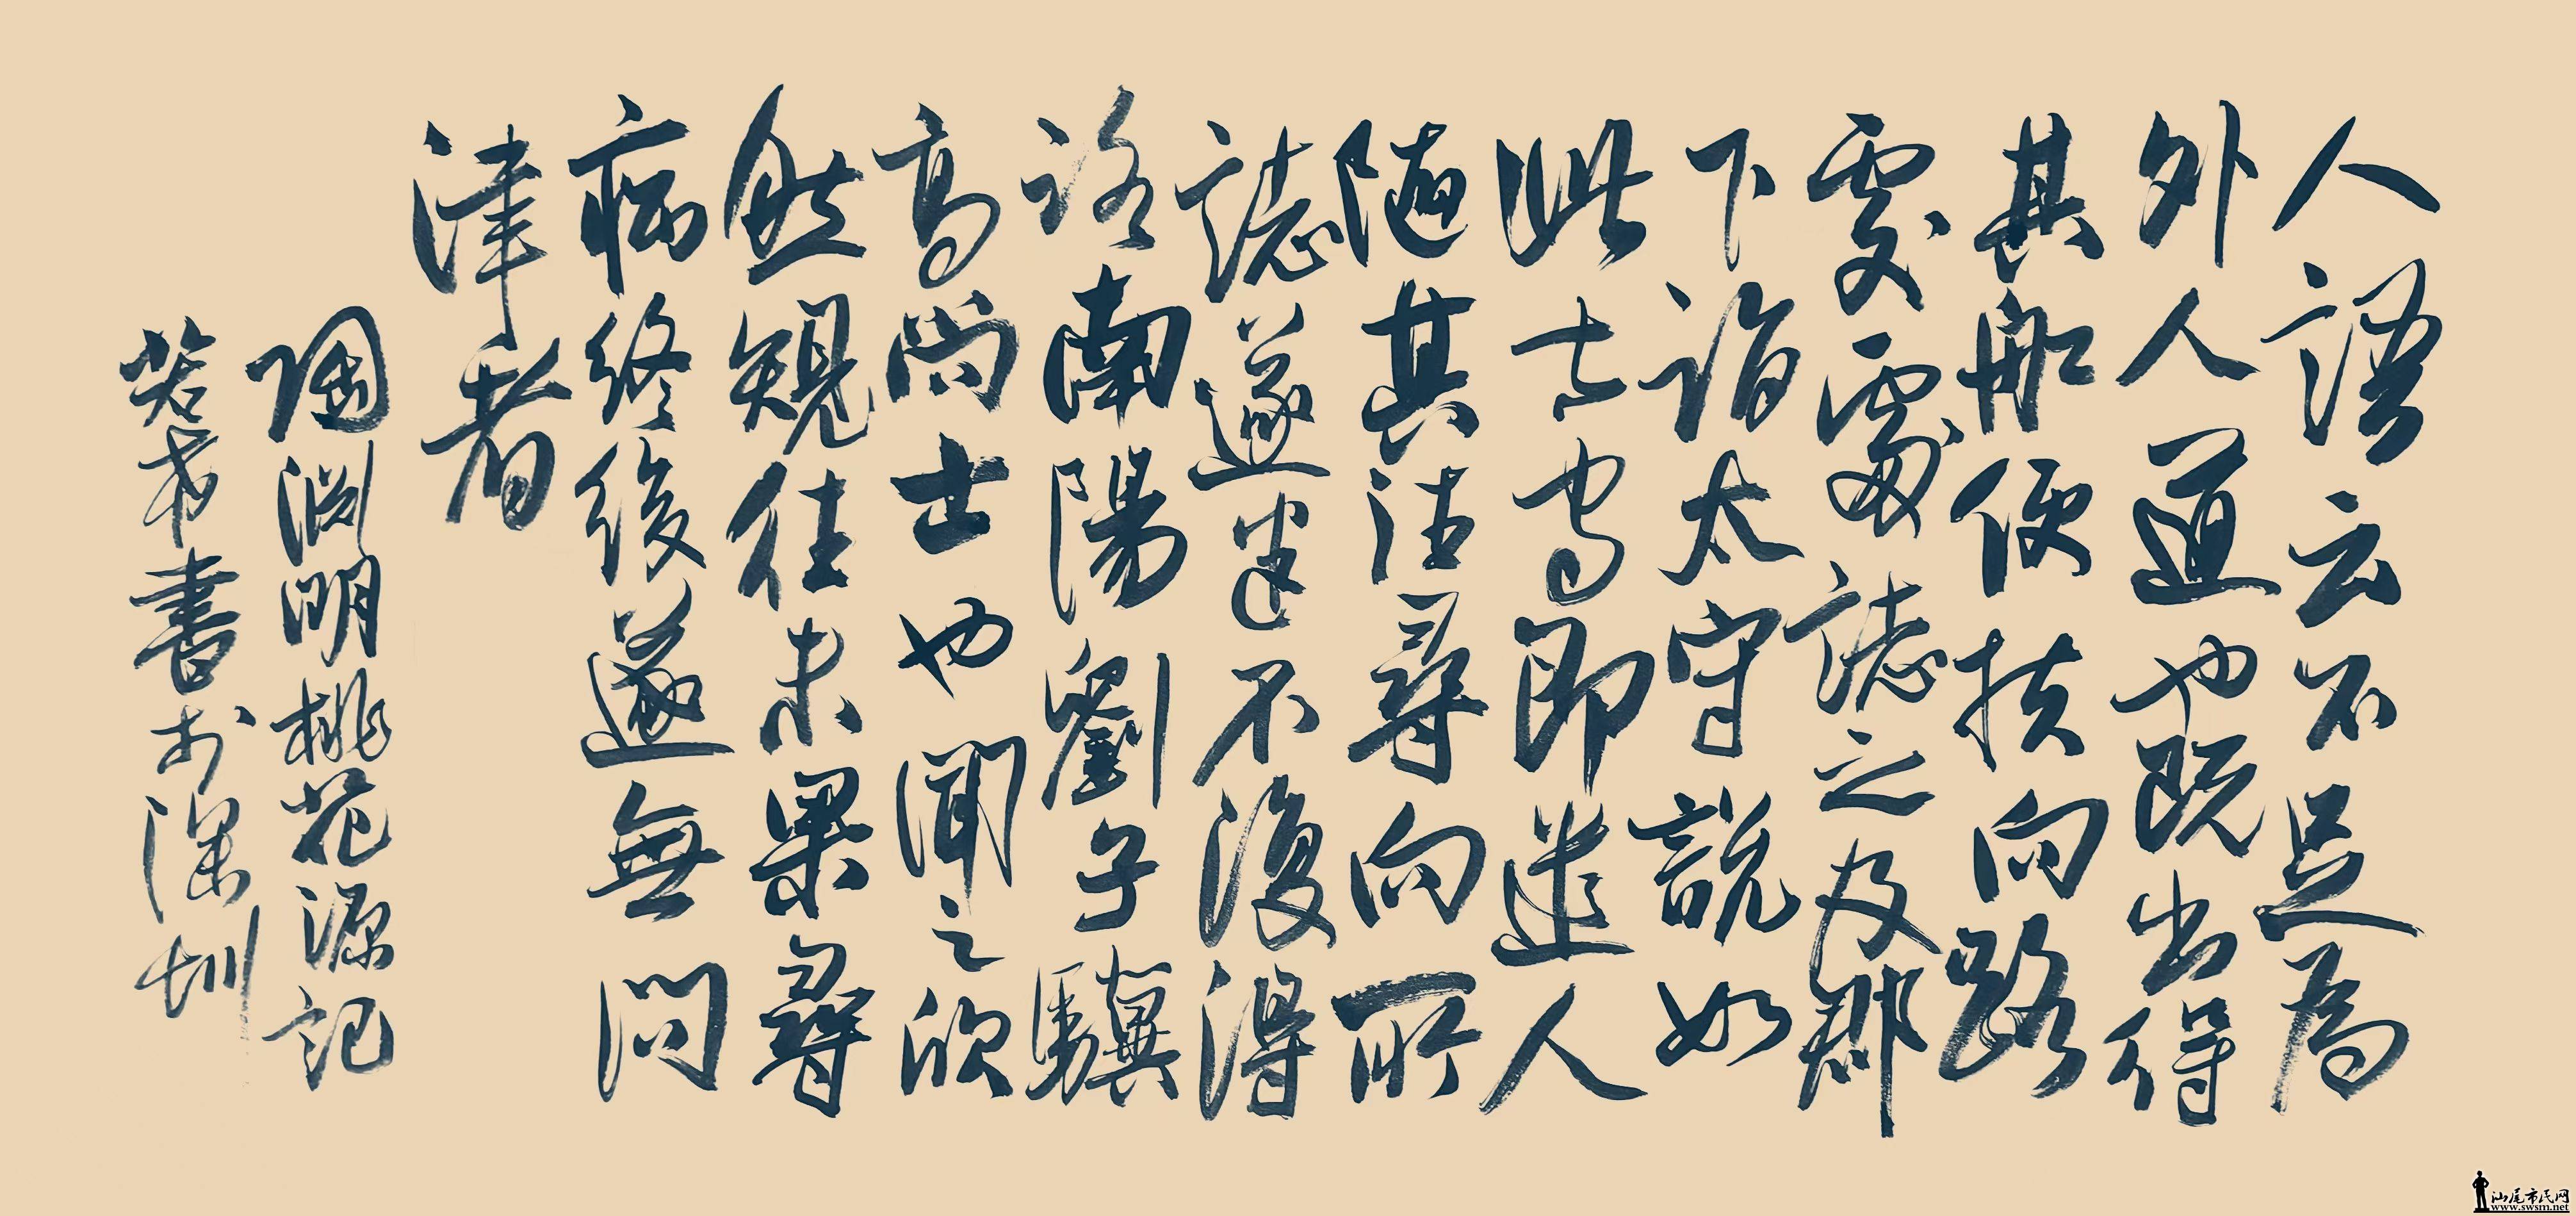 人語云不足為
外人道也既出得
其船便扶向路
處處誌之及郡
下詣太守說如
此太守即遣人
隨其往尋向所
誌遂迷不復得
路南陽劉子驥
高尚士也聞之欣
然規往未果尋
病終後遂無問
津者
陶淵明桃花源記
若希書於深圳
汕尾市民网
www.swsm.net